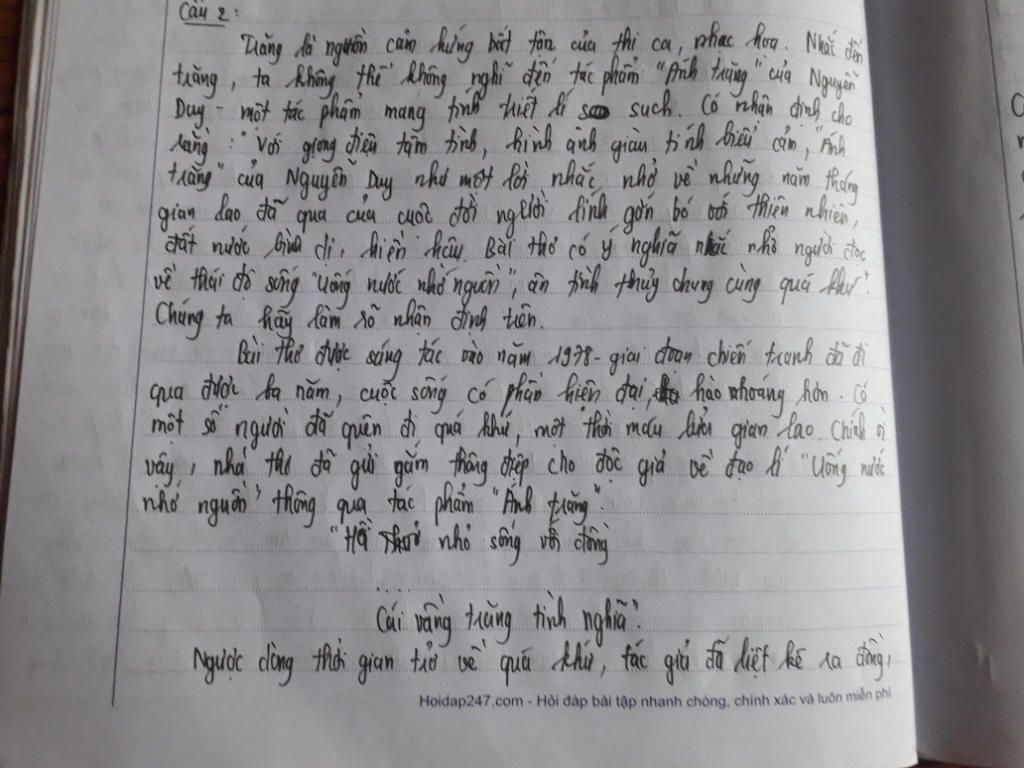 Câu 2:
Trăng là nguồn cảm hứng bất tận của thi ca, nhạc hoạ. Nhắc đến
trăng, ta không thể không nghĩ đến tác phẩm "Ánh trăng" của Nguyễn
Duy - một tác phẩm mang tính triết lí such. Có nhận định cho
rằng: "Với giọng điệu tâm tình, hình ảnh giàu tính biểu cảm, "Ánh
trăng" của Nguyễn Duy như một lời nhắc nhở về những năm tháng
gian lao đã qua của cuộc đời người lính gắn bó với thiên nhiên,
đất nước bình dị, hiền hậu. Bài thơ có ý nghĩa nhắc nhở người đọc
về thái độ sống "uống nước nhớ nguồn", ân tình thủy chung cùng quá khứ".
Chúng ta hãy làm rõ nhận định trên.
Bài thơ được sáng tác vào năm 1978 - giai đoạn chiến tranh đã đi
qua được ba năm, cuộc sống có phần hiện đại, hào nhoáng hơn. Có
một số người đã quên đi quá khứ, một thời máu lửa gian lao. Chính vì
vậy, nhà thơ đã gửi gắm thông điệp cho độc giả về đạo lí "Uống nước
nhớ nguồn" thông qua tác phẩm "Ánh trăng".
"Hồi nhỏ sống với đồng
....
Cái vầng trăng tình nghĩa".
Ngược dòng thời gian trở về quá khứ, tác giả đã liệt kê ra đồng,
Hoidap247.com - Hỏi đáp bài tập nhanh chóng, chính xác và luôn miễn phí